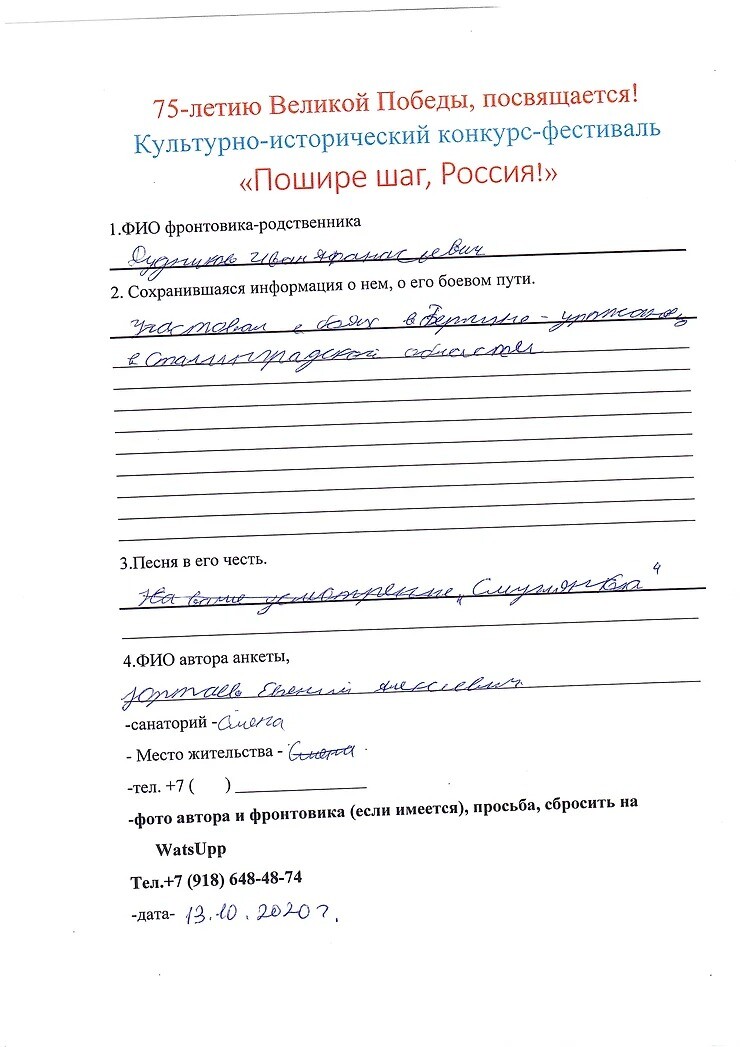 75-летию Великой Победы, посвящается!
Культурно-исторический конкурс-фестиваль
«Пошире шаг, Россия!»
1.ФИО фронтовика-родственника
Дудников Иван Афанасьевич
2. Сохранившаяся информация о нем, о его боевом пути.
Участвовал в боях в Берлине -
в Сталинградской
3.Песня в его честь.
На ваше усмотрение „Смуглянка"
4.ФИО автора анкеты,
Евгений Алексеевич
-санаторий - Смена
- Место жительства - Смена
-тел. +7 ( ) ______________
-фото автора и фронтовика (если имеется), просьба, сбросить на
WatsUpp
Тел.+7 (918) 648-48-74
-дата- 13.10.2020г.